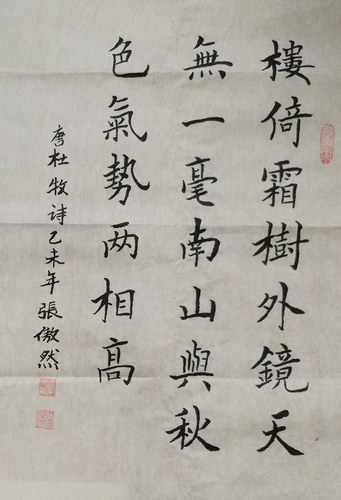 樓倚霜樹外鏡天
無一毫南山與秋
色氣勢两相高
唐杜牧诗乙未年張傲然